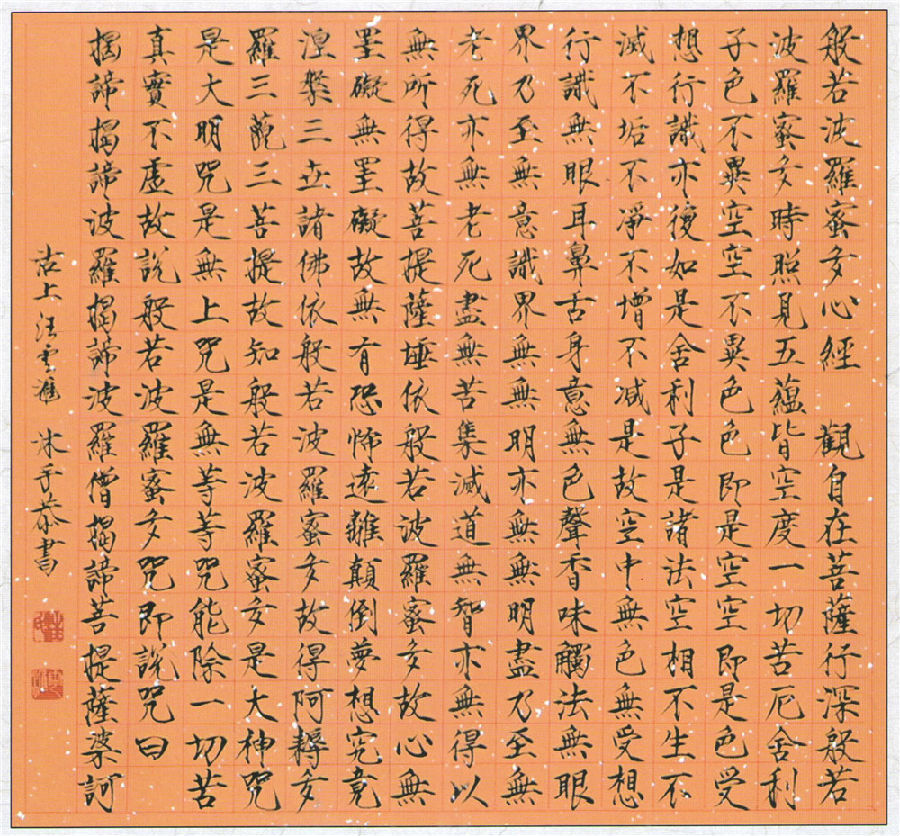 般若波羅蜜多心經 觀自在菩薩行深般若
波羅蜜多時照見五蘊皆空度一切苦厄舍利
子色不異空空不異色色即是空空即是色受
想行識亦復如是舍利子是諸法空相不生不
滅不垢不淨不增不減是故空中無色無受想
行識無眼耳鼻舌身意無色聲香味觸法無眼
界乃至無意識界無無明亦無無明盡乃至無
老死亦無老死盡無苦集滅道無智亦無得以
無所得故菩提薩埵依般若波羅蜜多故心無
罣礙無罣礙故無有恐怖遠離顛倒夢想究竟
涅槃三世諸佛依般若波羅蜜多故得阿耨多
羅三藐三菩提故知般若波羅蜜多是大神咒
是大明咒是無上咒是無等等咒能除一切苦
真實不虛故說般若波羅蜜多咒即說咒曰
揭諦揭諦波羅揭諦波羅僧揭諦菩提薩婆訶
古上汪雲進 沐手恭書